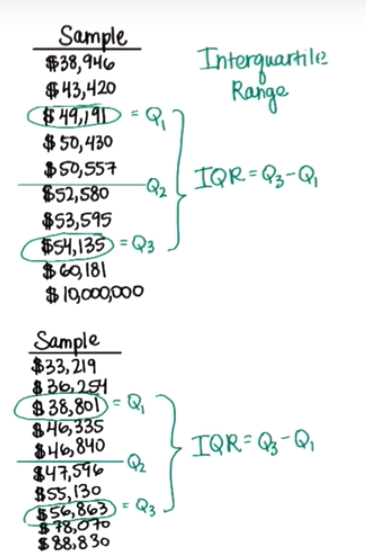 Sample
$38,946
$43,420
$49,191 = Q₁
$50,430
$50,557
Q₂
$52,580
$53,595
$54,135 = Q₃
$60,181
$10,000,000
Interquartile
Range
IQR = Q₃-Q₁
Sample
$33,219
$36,254
$38,801 = Q₁
$46,335
$46,840
Q₂
$47,596
$55,130
$56,863 = Q₃
$78,070
$88,830
IQR = Q₃-Q₁